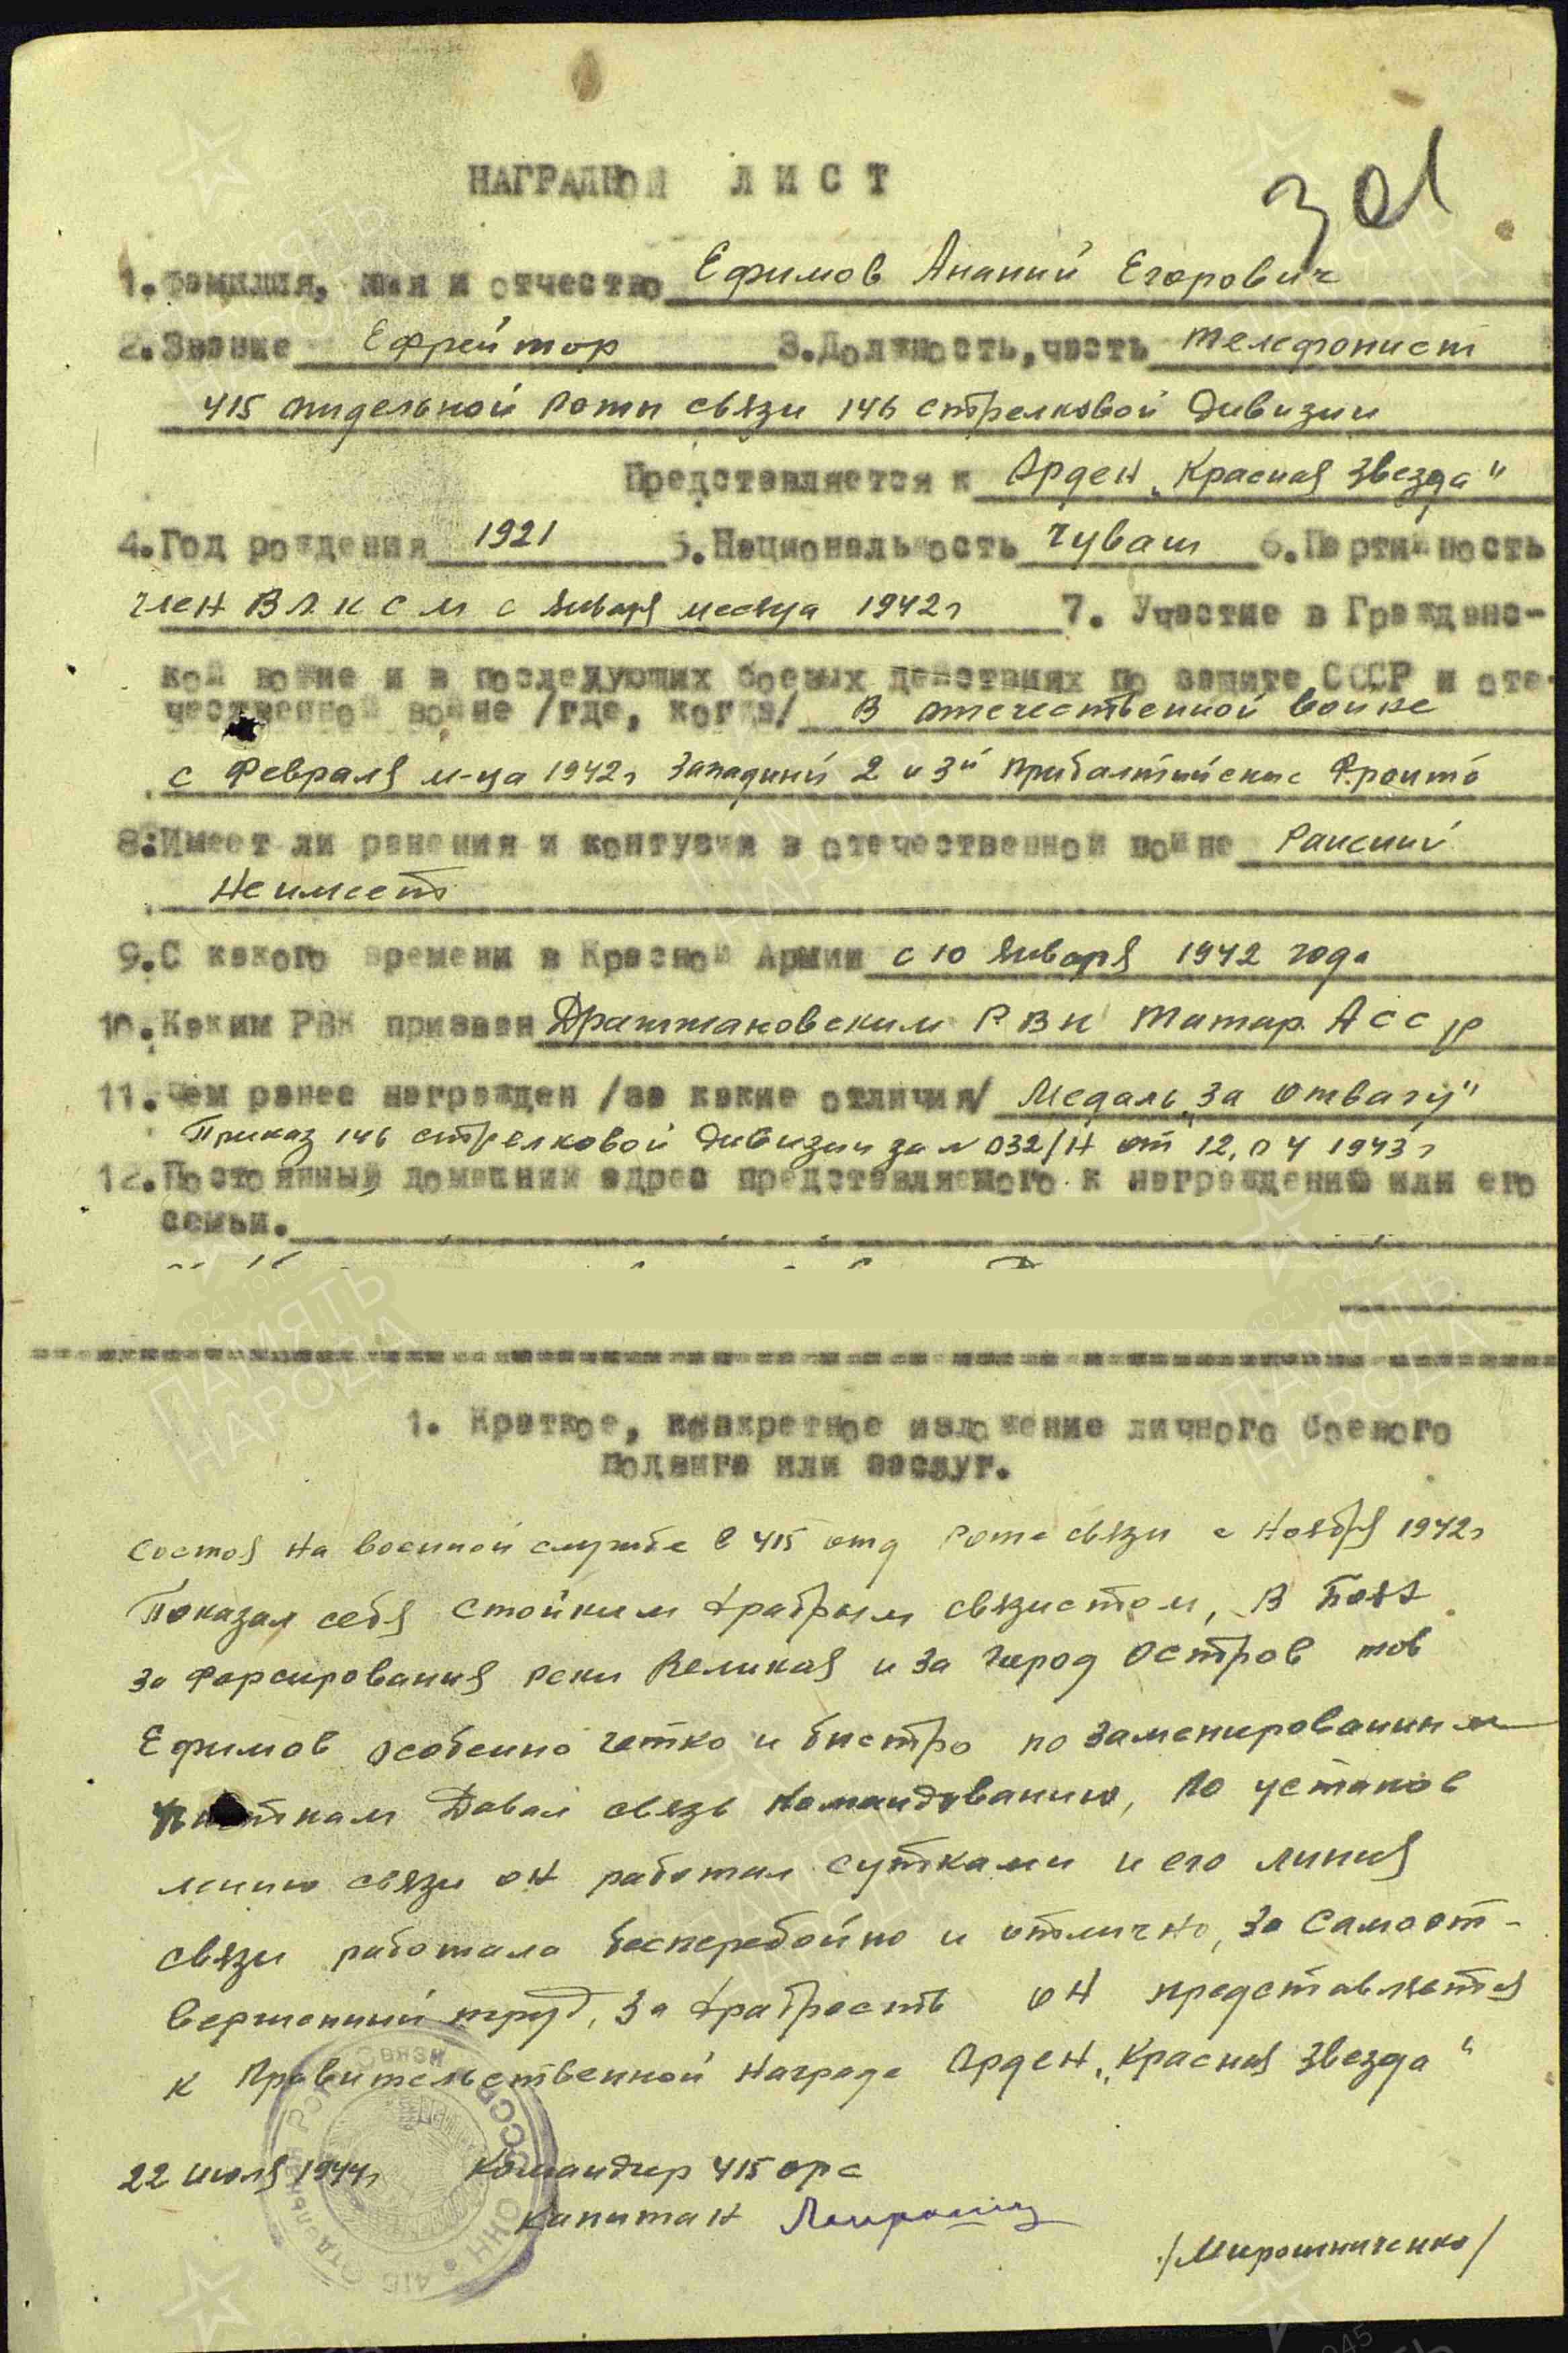 301
НАГРАДНОЙ ЛИСТ
1. Фамилия, имя и отчество Ефимов Ананий Егорович
2. Звание Ефрейтор 3. Должность, часть телефонист
415 отдельной роты связи 146 стрелковой дивизии
Представляется к Орден „Красная Звезда"
4. Год рождения 1921 5. Национальность чуваш 6. Партийность
член ВЛКСМ с января месяца 1942 г 7. Участие в Граждано-
кой войне и в последующих боевых действиях по защите СССР и оте-
чественной войне /где, когда/ В отечественной войне
с Февраля м-ца 1942 г Западний 2 и 3й прибалтийские Фронтв
8. Имеет ли ранения и контузии в отечественной войне Ранений
Неимеет
9. С какого времени в Красной Армии с 10 января 1942 года
10. Каким РВК призван Дражжановским РВК Татар. АССР
11. Чем ранее награжден /за какие отличия/ Медаль „За Отвагу"
Приказ 146 стрелковой дивизии за № 032/Н от 12.04 1943 г
12. Постоянный домашний адрес представляемого к награждению или его
семьи.
1. Краткое, конкретное изложение личного боевого
подвига или заслуг.
Состоя на военной службе в 415 отд Роте связи с Ноября 1942 г
Показал себя стойким храбрым связистом, В боях
за Форсирования реки Великая и за город Остров тов
Ефимов особенно четко и быстро по
Давал связь Командованию, По установ
лению связи он работал сутками и его линия
связи работала бесперебойно и отлично, За Самоот-
верженний труд, За храбрость он представляется
к Правительственной Награде Орден „Красная Звезда"
22 июля 1944 г Командир 415 орс
Капитан
/Мирошниченко/
ПАМЯТЬ НАРОДА